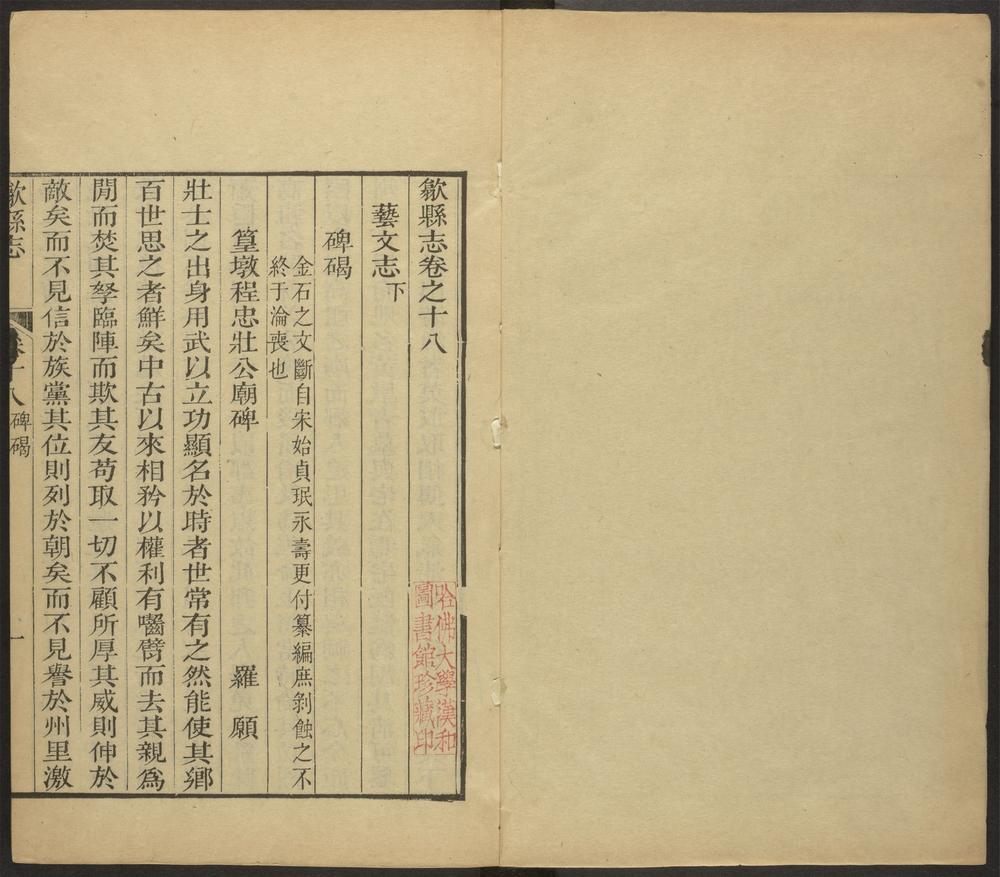 歙縣志卷之十八
藝文志下
碑碣
金石之文斷自宋始貞珉永壽更付纂編庶剝蝕之不
終于淪喪也
篁墩程忠壯公廟碑 羅願
壯士之出身用武以立功顯名於時者世常有之然能使其鄉
百世思之者鮮矣中古以來相矜以權利有嚙臂而去其親為
閒而焚其孥臨陣而欺其友苟取一切不顧所厚其威則伸於
敵矣而不見信於族黨其位則列於朝矣而不見譽於州里激
歙縣志 卷十八 碑碣 一
哈佛大學漢和
圖書館珍藏印